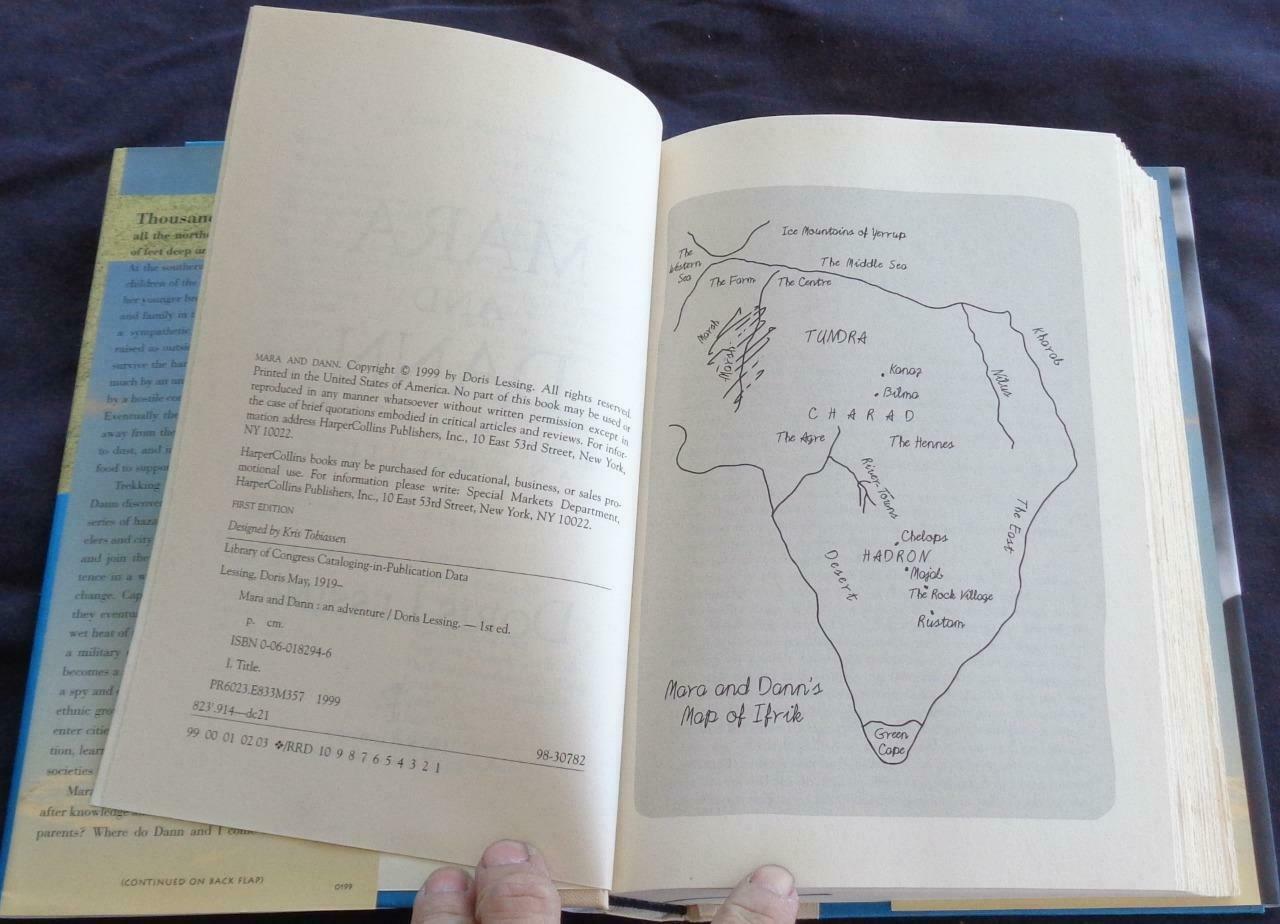 Thousan
all the north
of feet deep an
At the souther
children of the
her younger br
and family in t
a sympathetic
raised as outsi
survive the har
much by an un
by a hostile co
Eventually the
away from the
to dust, and n
food to suppo
Trekking
Dann discove
series of haza
elers and city
and join the
tence in a w
change. Cap
they eventu
wet heat of
a military
becomes a
a spy and
ethnic gro
enter citie
tion, learn
societies
Mar
after knowledge
parents? Where do Dann and I come
(CONTINUED ON BACK FLAP)
0199
MARA AND DANN. Copyright © 1999 by Doris Lessing. All rights reserved.
Printed in the United States of America. No part of this book may be used or
reproduced in any manner whatsoever without written permission except in
the case of brief quotations embodied in critical articles and reviews. For infor-
mation address HarperCollins Publishers, Inc., 10 East 53rd Street, New York,
NY 10022.
HarperCollins books may be purchased for educational, business, or sales pro-
motional use. For information please write: Special Markets Department,
HarperCollins Publishers, Inc., 10 East 53rd Street, New York, NY 10022.
FIRST EDITION
Designed by Kris Tobiassen
Library of Congress Cataloging-in-Publication Data
Lessing, Doris May, 1919–
Mara and Dann : an adventure / Doris Lessing. — 1st ed.
p. cm.
ISBN 0-06-018294-6
I. Title.
PR6023.E833M357 1999
823'.914—dc21
98-30782
99 00 01 02 03 ❖/RRD 10 9 8 7 6 5 4 3 2 1
Ice Mountains of Yerrup
The Western Sea
The Middle Sea
The Farm
The Centre
Marsh
Marsh
TUNDRA
Kharab
Nilus
Kanaz
Bilma
CHARAD
The Agre
The Hennes
River Towns
The East
Chelops
HADRON
Desert
Majab
The Rock Village
Rustam
Mara and Dann's
Map of Ifrik
Green
Cape